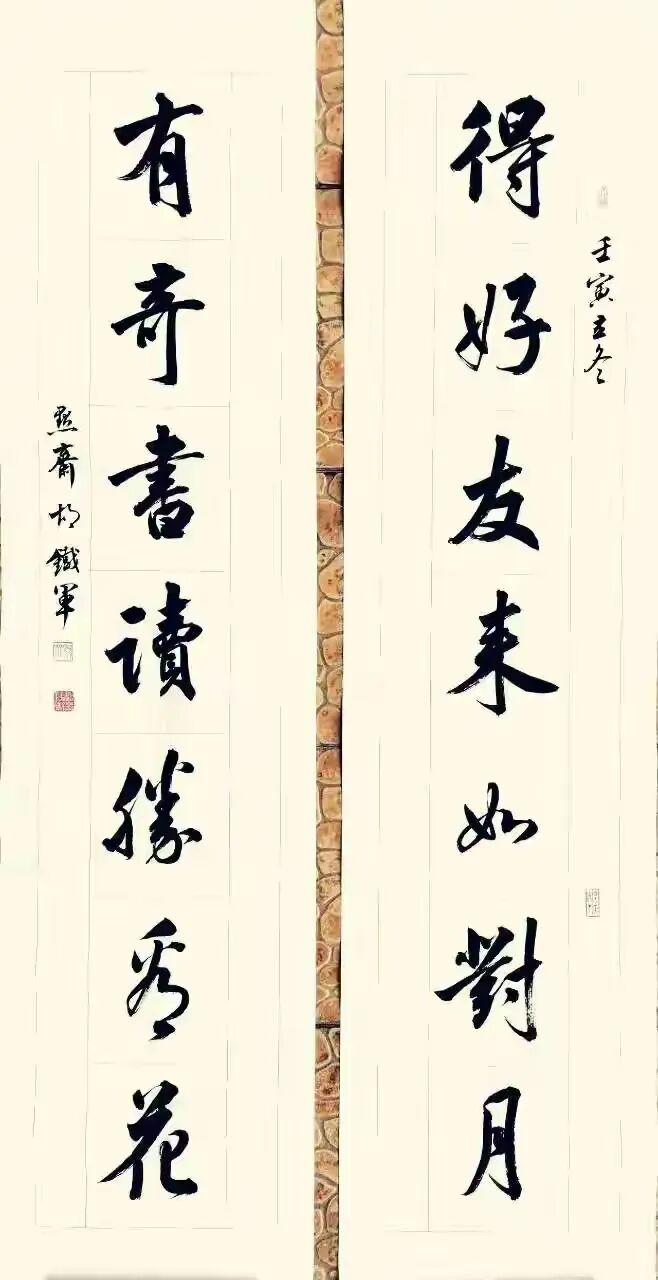 壬寅立冬
得好友来如對月
有奇書讀勝看花
齋胡鐵軍